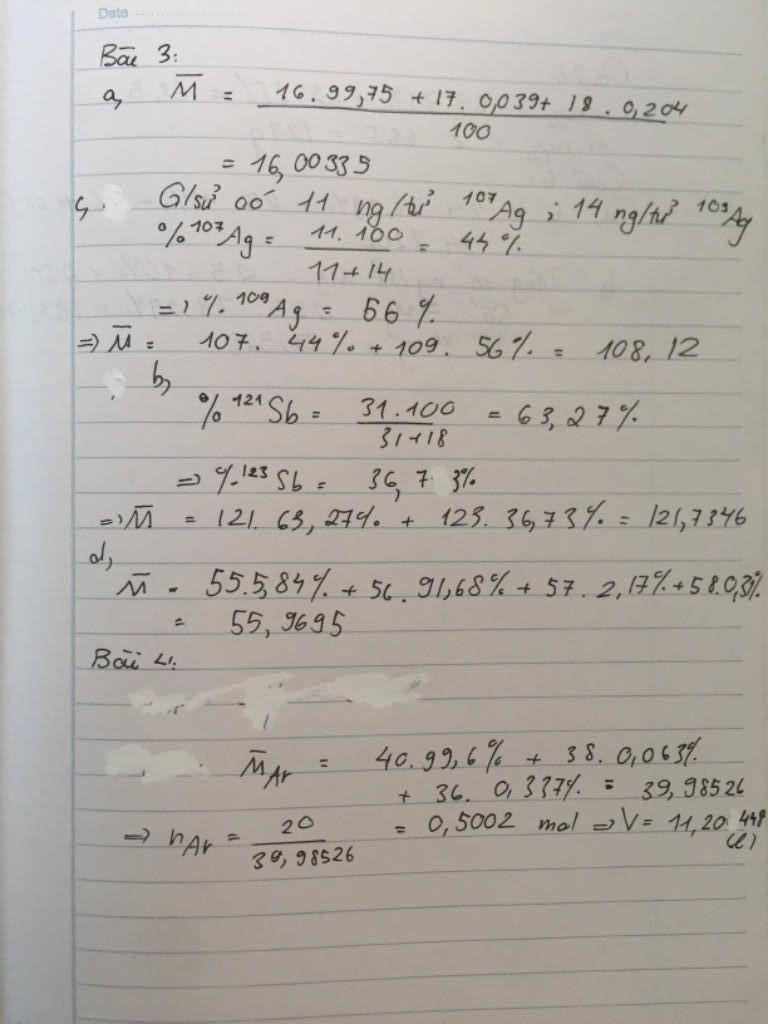 Date
Bài 3:
a, M̅ = (16.99,75 + 17.0,039 + 18.0,204) / 100
= 16,00335
c, G/sử có 11 ng/tử ¹⁰⁷Ag ; 14 ng/tử ¹⁰⁹Ag
%¹⁰⁷Ag = (11.100) / (11+14) = 44%
=> %¹⁰⁹Ag = 56%
=> M̅ = 107.44% + 109.56% = 108,12
b,
%¹²¹Sb = (31.100) / (31+18) = 63,27%
=> %¹²³Sb = 36,73%
=> M̅ = 121.63,27% + 123.36,73% = 121,7346
d,
M̅ = 55.5,84% + 56.91,68% + 57.2,17% + 58.0,31%
= 55,9695
Bài 4:
M̅Ar = 40.99,6% + 38.0,063%
+ 36.0,337% = 39,98526
=> nAr = 20 / 39,98526 = 0,5002 mol => V = 11,20448
(l)